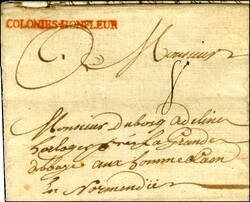 COLONIES·HONFLEUR
A Monsieur
8
Monsieur Duboscq adeline
horloger près La Grande
abbaye aux hommes a Caen
en Normendie